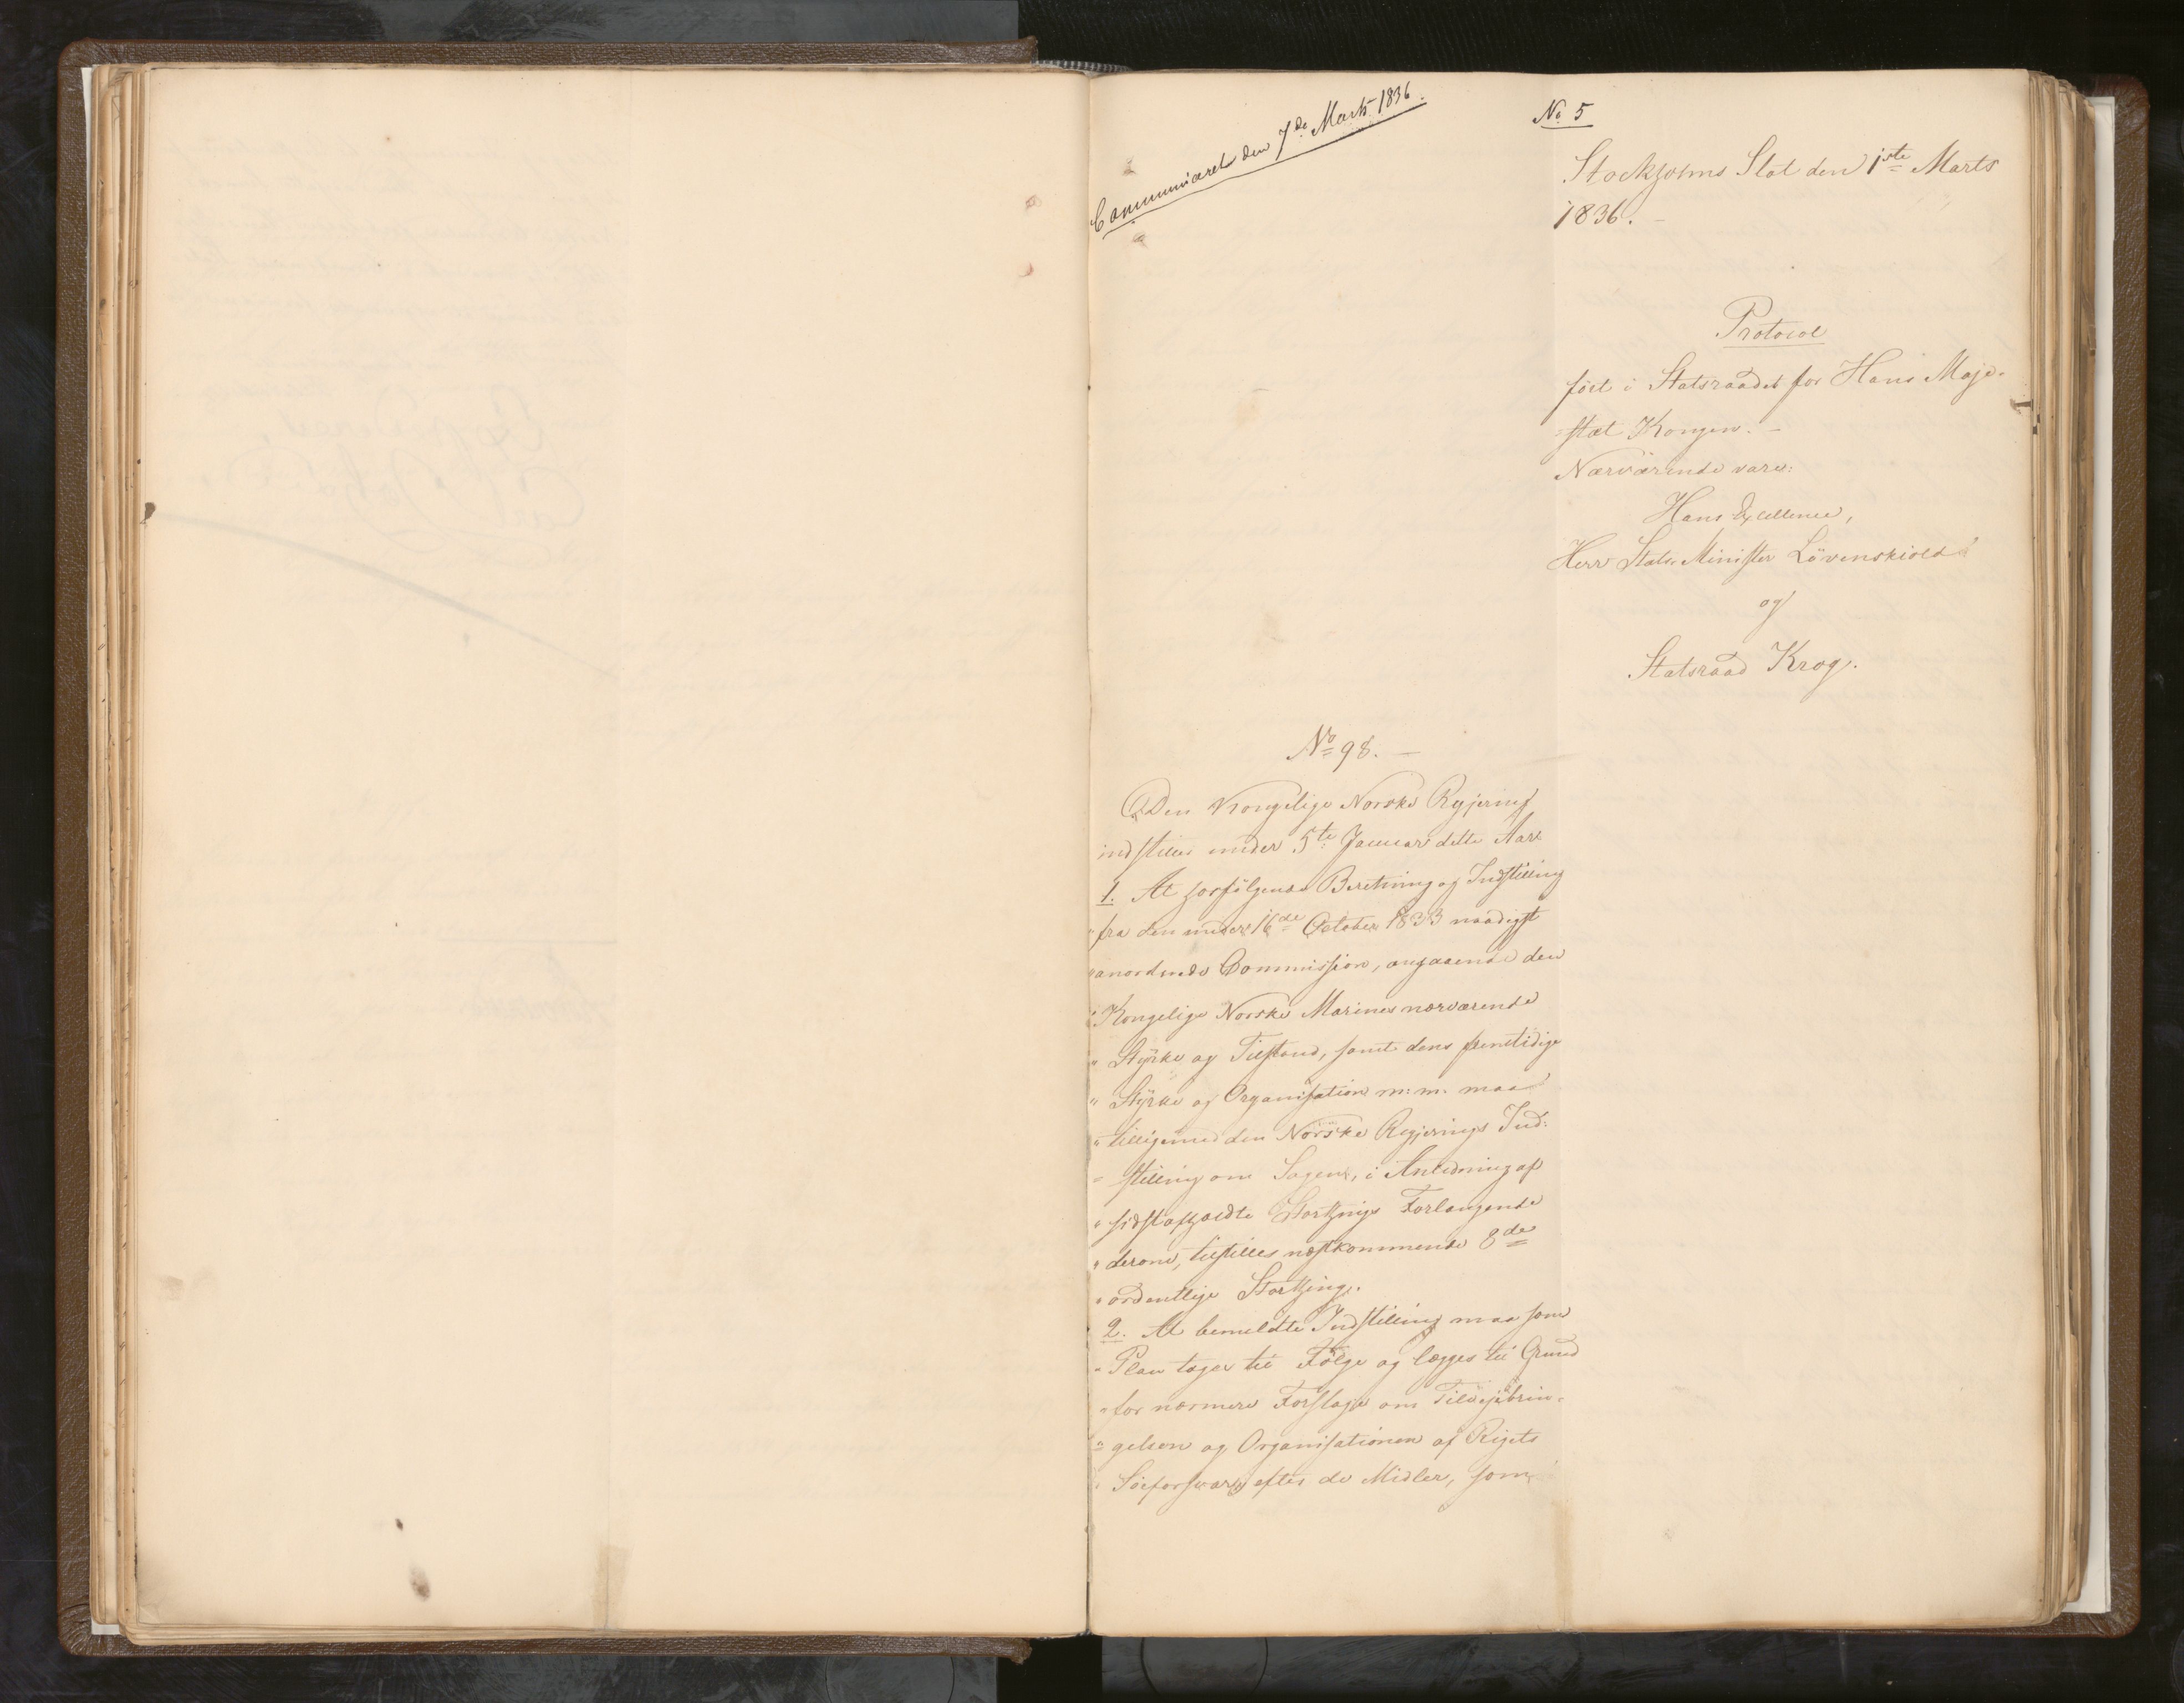 Communiceret den 7de Marts 1836.
No 5
Stockholms Slot den 1ste Marts
1836. -
Protocol
ført i Statsraadet for Hans Maje-
stæt Kongen. -
Nærværende vare:
Hans Excellence,
Herr Stats-Minister Lövenskiold
og
Statsraad Krog.
No 98. -
Den Kongelige Norske Regjering
indstiller under 5te Januar dette Aar
1. At hosfölgende Beretning og Indstilling
" fra den under 16de October 1833 naadigst
" anordnede Commission, angaaende den
" Kongelige Norske Marines nærværende
" Styrke og Tilstand, samt dens fremtidige
" Styrke og Organisation m: m. maa
" tilligemed den Norske Regjerings Ind-
" stilling om Sagen, i Anledning af
" sidstafholdte Storthings Forlangende
" derom, tilstilles næstkommende 8de
" ordentlige Storthing.
2. At bemeldte Indstilling maa som
" Plan tages til Fölge og lægges til Grund
" for nærmere Forslage om Tilveiebrin-
" gelsen og Organisationen af Rigets
" Söeforsvar, efter de Midler, som